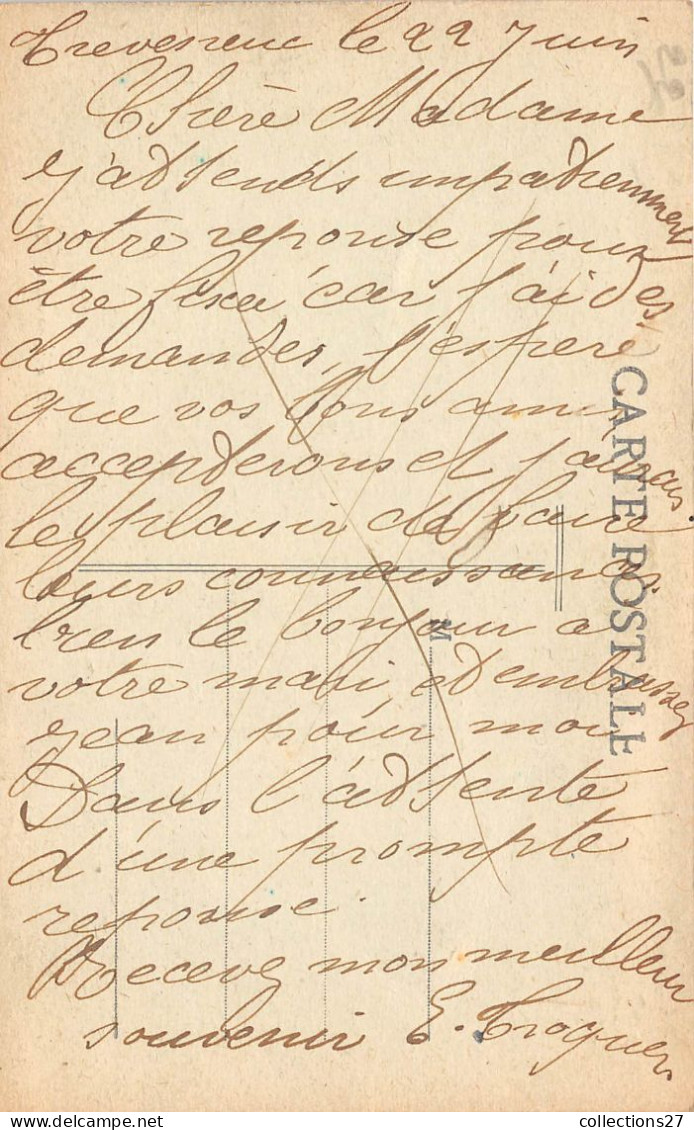 Treveneuc le 22 Juin
Chère Madame
j'attends impatiemment
votre reponse pour
être fixé car j'ai des
demandes, j'espere
que vos bons amis
accepterons et j'aurais
le plaisir de faire
leurs connaissances
bien le bonjour a
votre mari et embrassez
jean pour moi
Dans l'attente
d'une prompte
reponse.
Recevez mon meilleur
souvenir E.
CARTE POSTALE
M
collections27